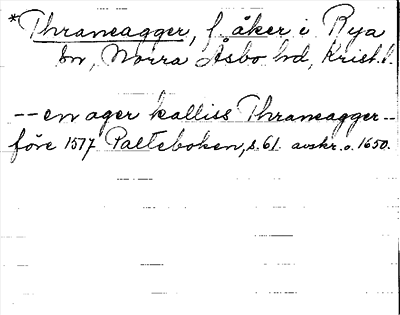 *Thraneagger, f. åker i Rya
sn, Norra Åsbo hd, Krist. l.
-- en ager kalliss Thraneagger --
före 1577 Palteboken, s. 61. avskr. o. 1650.